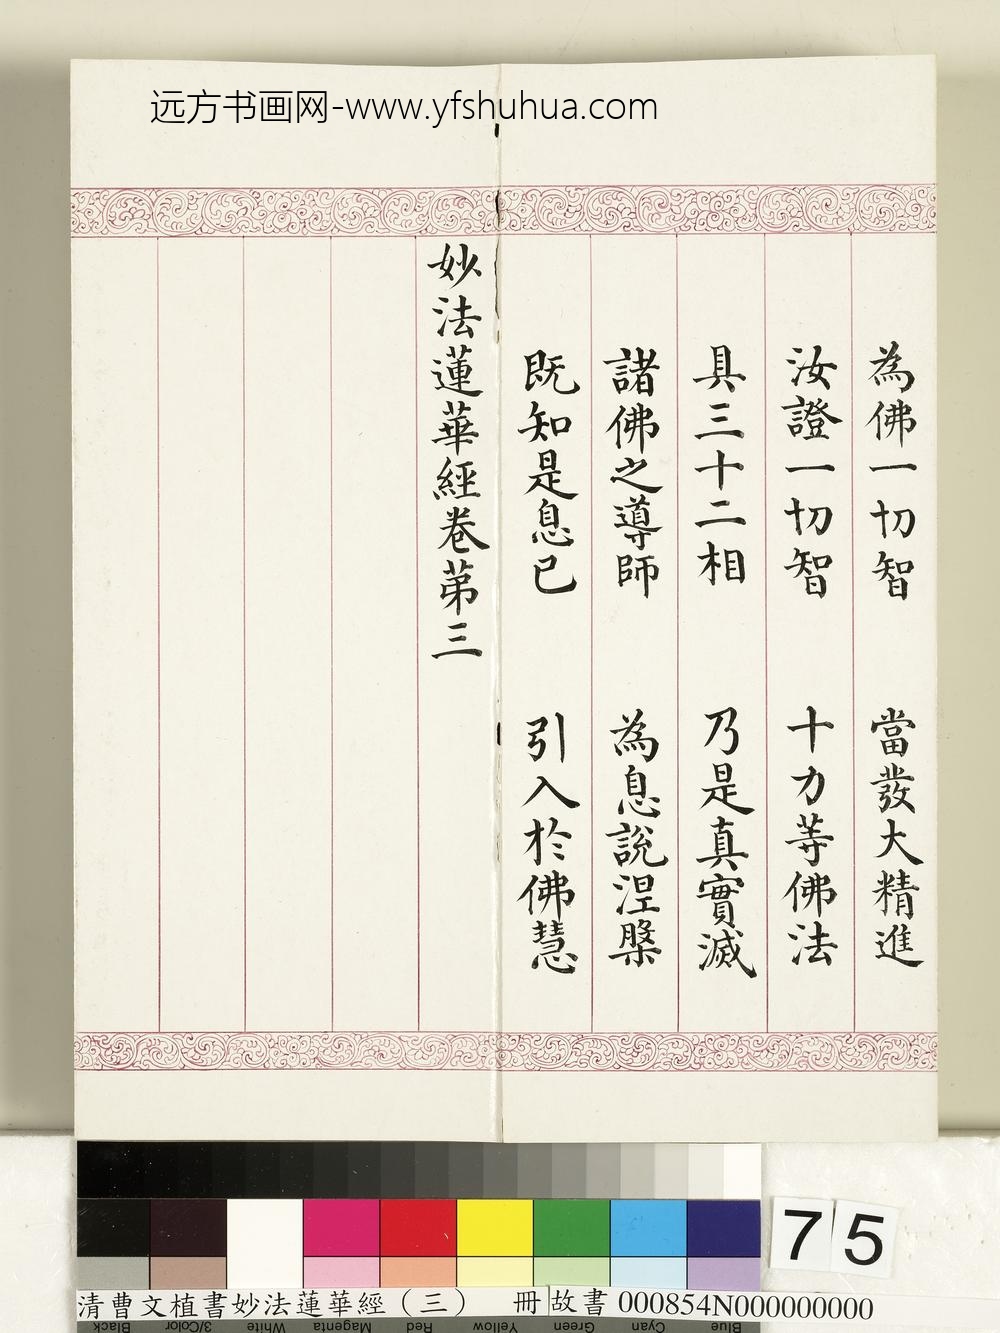 远方书画网-www.yfshuhua.com
為佛一切智 當發大精進
汝證一切智 十力等佛法
具三十二相 乃是真實滅
諸佛之導師 為息說涅槃
既知是息已 引入於佛慧
妙法蓮華經卷苐三
75
清曹文植書妙法蓮華經（三） 冊 故書 000854N000000000
Black 3/Color White Magenta Red Yellow Green Cyan Blue